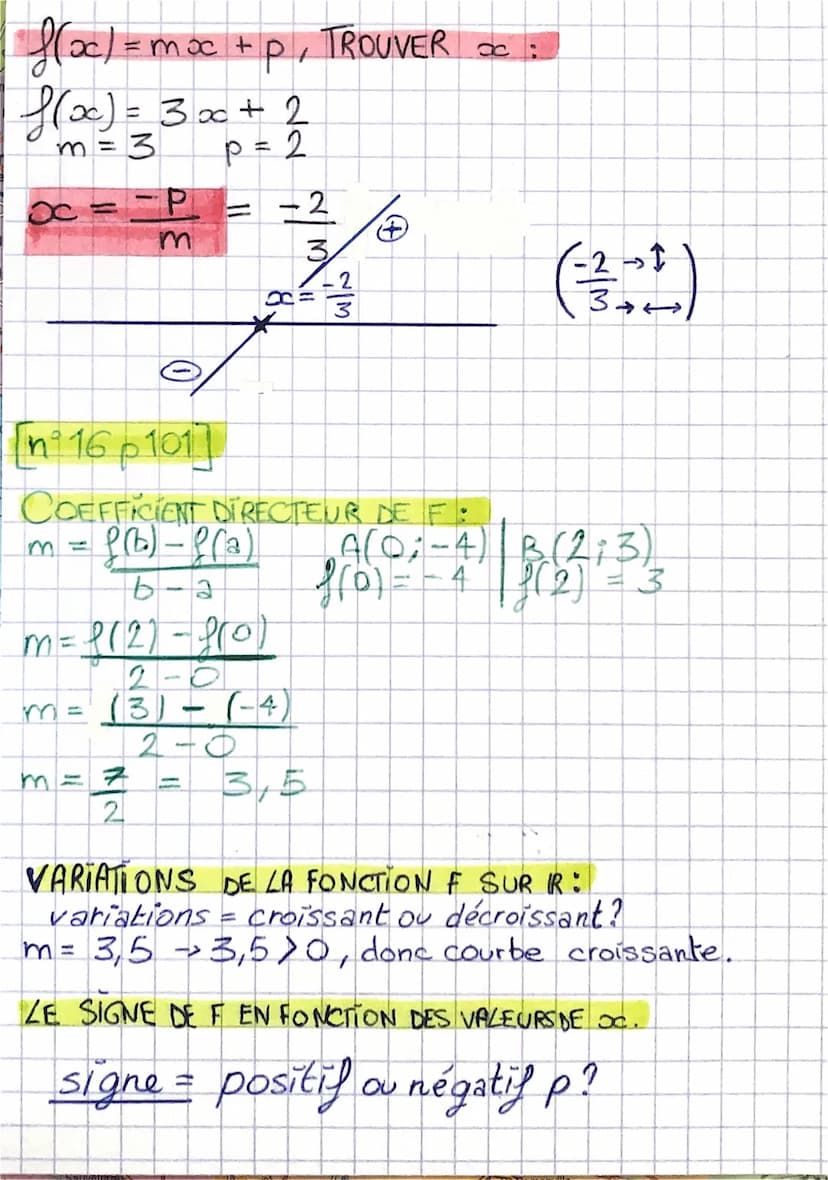 f(x) = mx + p, TROUVER x :
f(x) = 3x + 2
m = 3 p = 2
x = -p/m = -2/3
+
x = -2/3
(-2/3 → ↕ → ↔)
-
[n°16 p101]
COEFFICIENT DIRECTEUR DE F :
m = f(b) - f(a) / b - a A(0 ; -4) | B(2 ; 3)
f(0) = -4 | f(2) = 3
m = f(2) - f(0) / 2 - 0
m = (3) - (-4) / 2 - 0
m = 7/2 = 3,5
VARIATIONS DE LA FONCTION F SUR IR :
variations = croissant ou décroissant ?
m = 3,5 → 3,5 > 0, donc courbe croissante.
LE SIGNE DE F EN FONCTION DES VALEURS DE x.
signe = positif ou négatif p ?